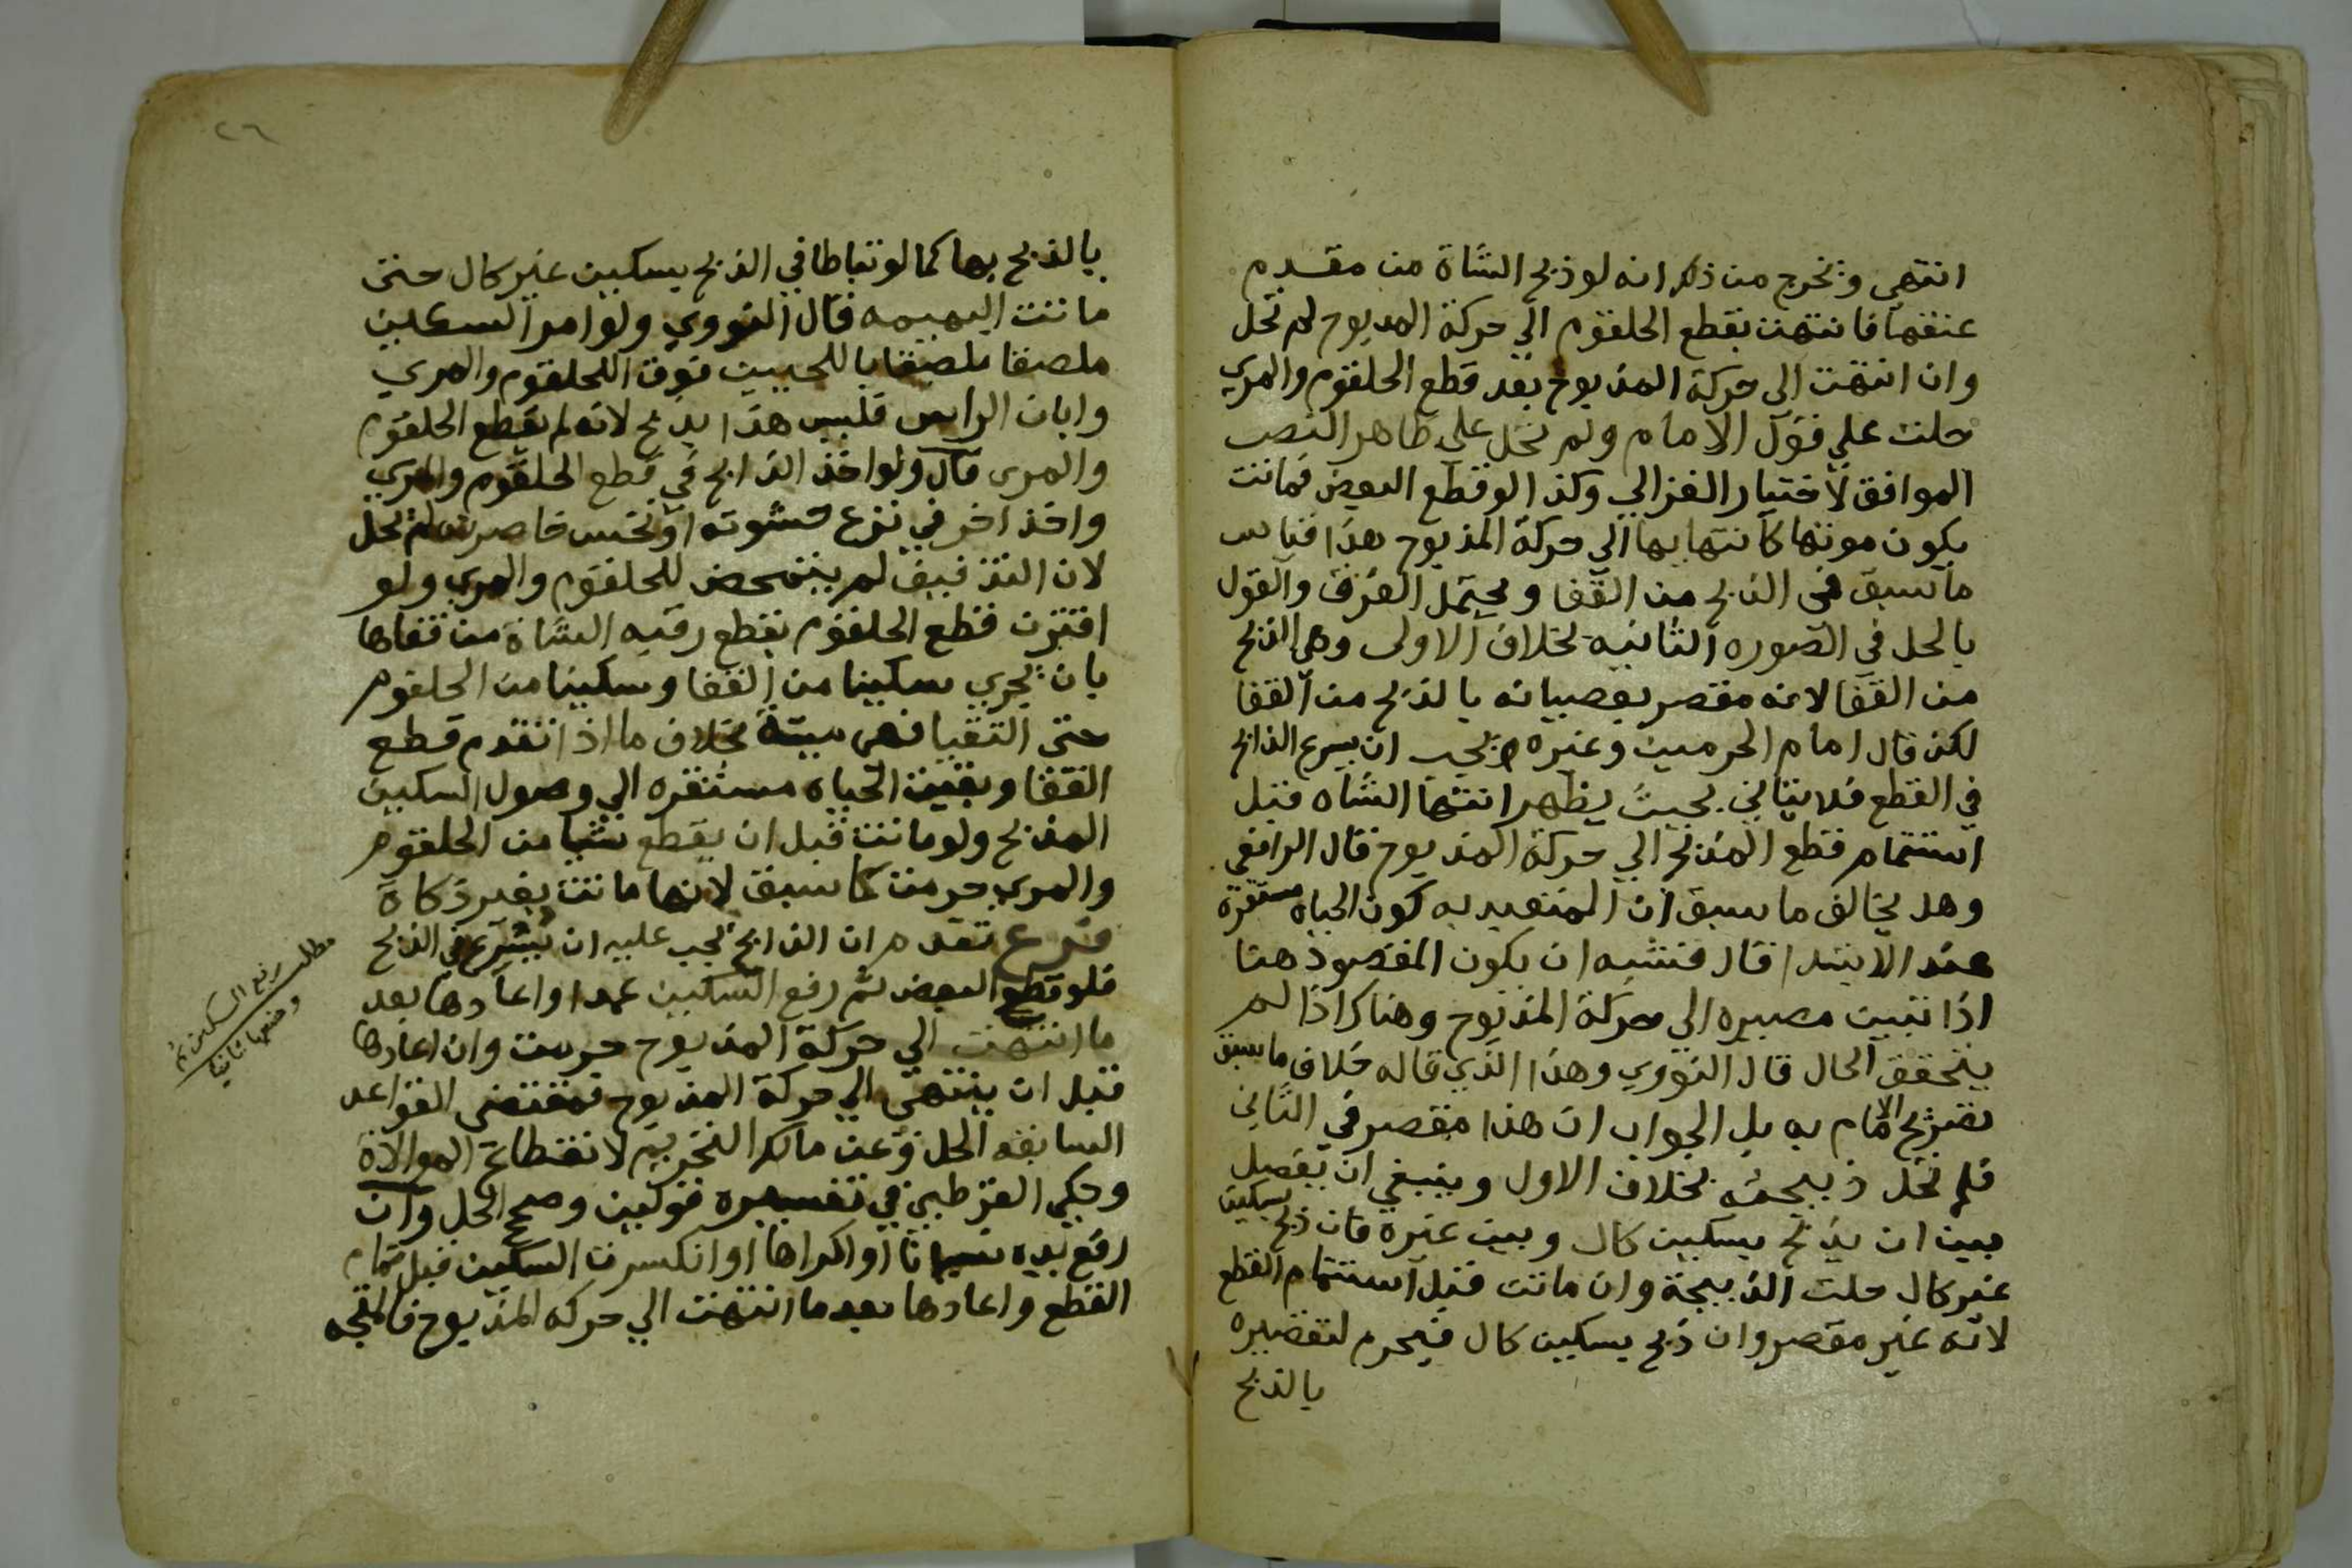 انتهي وتخرج من ذلك انه لو ذبح الشاة من مقدم
عنقها فانتهت بقطع الحلقوم الي حركة المدبوح لم تحل
وان انتهت الى حركة المذبوح بعد قطع الحلقوم والمري
حلت علي قول الامام ولم تحل على ظاهر النص
الموافق لاختيار الغزالي وكذا لو قطع البعض فماتت
يكون موتها كانتهايها الي حركة المذبوح هذا قياس
ما سبق في الذبح من القفا ويحتمل الفرق والقول
بالحل في الصوره الثانيه بخلاف الاولى وهي الذبح
من القفا لانه مقصر بعصيانه بالذبح من القفا
لكن قال امام الحرمين وغيره يجب ان يسرع الذابح
في القطع فلا يتاني بحيث يظهر انتها الشاه قبل
استتمام قطع المذبح الي حركة المذبوح قال الرافعي
وهد يخالف ما سبق ان المتعبد به كون الحياه مستقرة
عند الابتدا قال فتشبه ان يكون المقصود هنا
اذا تبين مصيره الى حركة المذبوح وهناك اذا لم
يتحقق الحال قال النووي وهذا الذي قاله خلاف ما سبق
تصريح الامام به بل الجواب ان هذا مقصر في الثاني
فلم تحل ذبيحته بخلاف الاول وينبغي ان يفصل
بين ان يذبح بسكين كال وبين غيره فان ذبح بسكين
غير كال حلت الذبيحة وان ماتت قبل استتمام القطع
لانه غير مقصر وان ذبح بسكين كال فيحرم لتقصيره
بالذبح
٢٦
بالذبح بها كما لو تباطا في الذبح بسكين غير كال حتى
ماتت البهيمه قال النووي ولو امر السكين
ملصقا باللحيين فوق الحلقوم والمري
وابان الراس فليس هذا بذبح لانه لم يقطع الحلقوم
والمرى قال ولو اخذ الذابح في قطع الحلقوم والمري
واخذ اخر في نزع حشوته او نخس خاصرته لم تحل
لان التذفيف لم يتمحض للحلقوم والمري ولو
اقترن قطع الحلقوم بقطع رقبه الشاة من قفاها
بان يجري سكينا من القفا وسكينا من الحلقوم
حتى التقيا فهي ميتة بخلاف ما اذا تقدم قطع
القفا وبقيت الحياه مستقره الي وصول السكين
المذبح ولو ماتت قبل ان يقطع شيا من الحلقوم
والمري حرمت كما سبق لانها ماتت بغير ذكاة
فرع تقدم ان الذابح يجب عليه ان يسرع في الذبح
فلو قطع البعض ثم رفع السكين عمدا واعادها بعد
ما انتهت الي حركة المذبوح حرمت وان اعادها
قبل ان ينتهي الي حركة المذبوح فمقتضى القواعد
السابقه الحل وعن مالك التحريم لانقطاع الموالاة
وحكي القرطبي في تفسيره قولين وصحح الحل وان
رفع يده نسيانا او اكراها او انكسرت السكين قبل تمام
القطع واعادها بعد ما انتهت الي حركه المذبوح فالمتجه
مطلب رفع السكين ثم
وضعها ثانيا